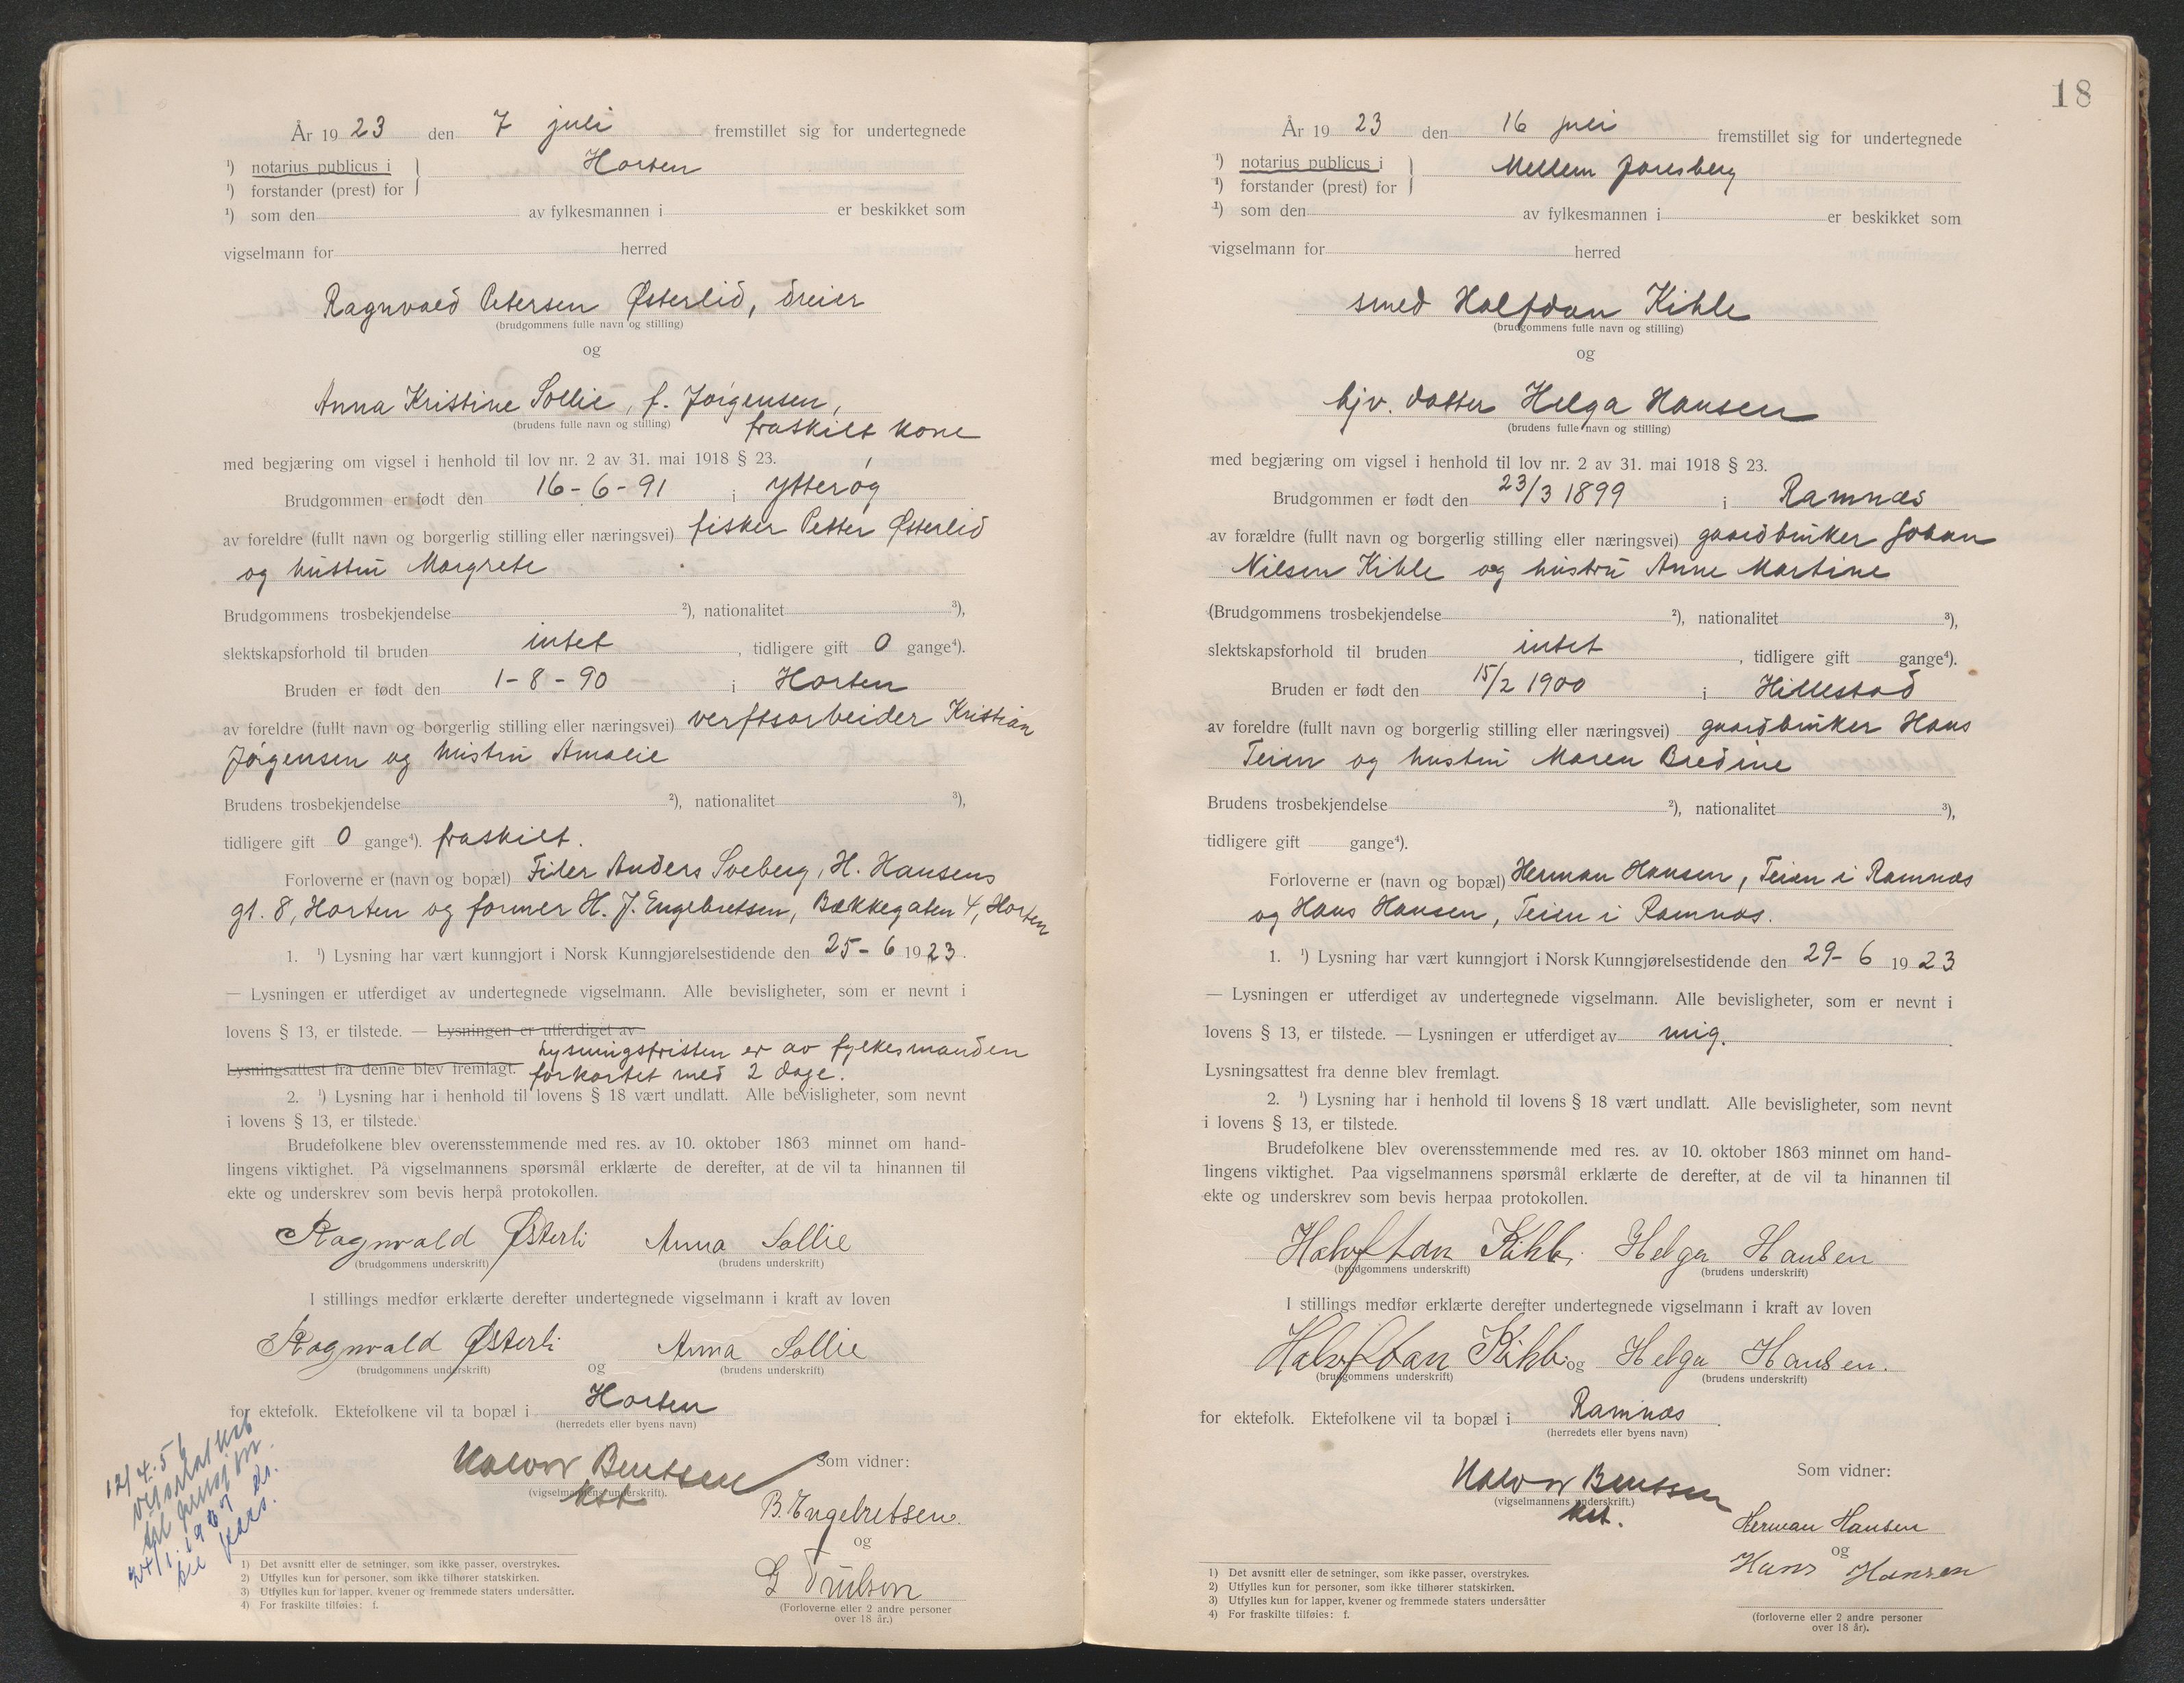 År 1923 den 7 juli fremstillet sig for undertegnede
¹) notarius publicus i } Horten
¹) forstander (prest) for
¹) som den av fylkesmannen i er beskikket som
vigselmann for herred
Ragnvald Petersen Østerlid, dreier
(brudgommens fulle navn og stilling)
og
Anna Kristine Sollie, f. Jørgensen,
(brudens fulle navn og stilling) fraskilt kone
med begjæring om vigsel i henhold til lov nr. 2 av 31. mai 1918 § 23.
Brudgommen er født den 16-6-91 i Ytterøy
av foreldre (fullt navn og borgerlig stilling eller næringsvei) fisker Petter Østerlid
og hustru Margrete
Brudgommens trosbekjendelse ²), nationalitet ³),
slektskapsforhold til bruden intet, tidligere gift 0 gange⁴).
Bruden er født den 1-8-90 i Horten
av foreldre (fullt navn og borgerlig stilling eller næringsvei) verftsarbeider Kristian
Jørgensen og hustru Amalie
Brudens trosbekjendelse ²), nationalitet ³),
tidligere gift 0 gange⁴). fraskilt.
Forloverne er (navn og bopæl) Filer Anders Soeberg, H. Hansens
gt. 8, Horten og former H. J. Engebretsen, Bækkegaten 4, Horten
1. ¹) Lysning har vært kunngjort i Norsk Kunngjørelsestidende den 25-6 1923.
— Lysningen er utferdiget av undertegnede vigselmann. Alle bevisligheter, som er nevnt i
lovens § 13, er tilstede. — Lysningen er utferdiget av
Lysningsfristen er av fylkesmanden
Lysningsattest fra denne blev fremlagt. forkortet med 2 dage.
2. ¹) Lysning har i henhold til lovens § 18 vært undlatt. Alle bevisligheter, som nevnt
i lovens § 13, er tilstede.
Brudefolkene blev overensstemmende med res. av 10. oktober 1863 minnet om hand-
lingens viktighet. På vigselmannens spørsmål erklærte de derefter, at de vil ta hinannen til
ekte og underskrev som bevis herpå protokollen.
Ragnvald Østerli Anna Sollie
(brudgommens underskrift) (brudens underskrift)
I stillings medfør erklærte derefter undertegnede vigselmann i kraft av loven
Ragnvald Østerli og Anna Sollie
(brudgommens underskrift) (brudens underskrift)
for ektefolk. Ektefolkene vil ta bopæl i Horten
(herredets eller byens navn)
Halvor Bentsen Som vidner:
(vigselmannens underskrift).
kst.
B. Engebretsen.
og
(Forloverne eller 2 andre personer
over 18 år.)
12/4.56
Vigselattest
1) Det avsnitt eller de setninger, som ikke passer, overstrykes.
2) Utfylles kun for personer, som ikke tilhører statskirken.
3) Utfylles kun for lapper, kvener og fremmede staters undersåtter.
4) For fraskilte tilføies: f.
18
År 1923 den 16 juli fremstillet sig for undertegnede
¹) notarius publicus i } Mellem Jarlsberg
¹) forstander (prest) for
¹) som den av fylkesmannen i er beskikket som
vigselmann for herred
smed Halfdan Kihle
(brudgommens fulle navn og stilling)
og
hjv. datter Helga Hansen
(brudens fulle navn og stilling)
med begjæring om vigsel i henhold til lov nr. 2 av 31. mai 1918 § 23.
Brudgommen er født den 23/3 1899 i Ramnæs
av forældre (fullt navn og borgerlig stilling eller næringsvei) gaardbruker Johan
Nilsen Kihle og hustru Anne Martine
(Brudgommens trosbekjendelse ²), nationalitet ³),
slektskapsforhold til bruden intet, tidligere gift gange⁴).
Bruden er født den 15/2 1900 i Hillestad
av foreldre (fullt navn og borgerlig stilling eller næringsvei) gaardbruker Hans
Teien og hustru Maren Bredine
Brudens trosbekjendelse ²), nationalitet ³),
tidligere gift gange⁴).
Forloverne er (navn og bopæl) Herman Hansen, Teien i Ramnæs
og Hans Hansen, Teien i Ramnæs.
1. ¹) Lysning har vært kunngjort i Norsk Kunngjørelsestidende den 29-6 1923
— Lysningen er utferdiget av undertegnede vigselmann. Alle bevisligheter, som er nevnt i
lovens § 13, er tilstede. — Lysningen er utferdiget av mig.
Lysningsattest fra denne blev fremlagt.
2. ¹) Lysning har i henhold til lovens § 18 vært undlatt. Alle bevisligheter, som nevnt
i lovens § 13, er tilstede.
Brudefolkene blev overensstemmende med res. av 10. oktober 1863 minnet om hand-
lingens viktighet. Paa vigselmannens spørsmål erklærte de derefter, at de vil ta hinannen til
ekte og underskrev som bevis herpaa protokollen.
Halvftan Kihle. Helga Hansen
(brudgommens underskrift) (brudens underskrift)
I stillings medfør erklærte derefter undertegnede vigselmann i kraft av loven
Halvftan Kihle og Helga Hansen.
(brudgommens underskrift) (brudens underskrift)
for ektefolk. Ektefolkene vil ta bopæl i Ramnæs.
(herredets eller byens navn)
Halvor Bentsen Som vidner:
(vigselmannens underskrift.)
kst.
Herman Hansen
og
Hans Hansen
(forloverne eller 2 andre personer
over 18 år).
1) Det avsnitt eller de setninger, som ikke passer, overstrykes.
2) Utfylles kun for personer, som ikke tilhører statskirken.
3) Utfylles kun for lapper, kvener og fremmede staters undersåtter
4) For fraskilte tilføies: f.